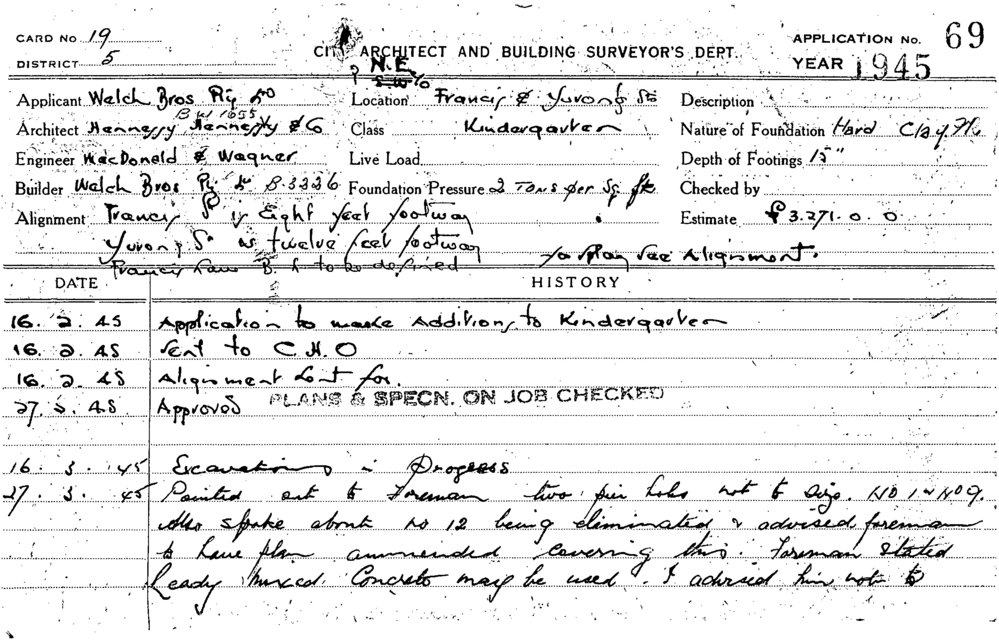 CARD No 19
DISTRICT 5
CITY ARCHITECT AND BUILDING SURVEYOR'S DEPT.
N.E.
APPLICATION No. 69
YEAR 1945
Applicant Welch Bros Pty
Location Francis & Yurong St
Description
B W 1655
Architect Hennessy Hennessy & Co
Class Kindergarten
Nature of Foundation Hard Clay
Engineer MacDonald & Wagner
Live Load
Depth of Footings 15"
Builder Welch Bros Pty B.3226
Foundation Pressure 2 Tons per Sq ft
Checked by
Alignment Francis St is Eight feet footway
Estimate £3.271.0.0
Yurong St is twelve feet footway
Francis Lane B. L to be defined
for Plan see Alignment.
DATE HISTORY
16. 2. 45 Application to make Additions to Kindergarten
16. 2. 45 Sent to C.H.O
16. 2. 45 Alignment sent for.
27. 45 Approved PLANS & SPECN. ON JOB CHECKED
16. 3. 45 Excavations in Progress
27. 3. 45 Pointed out to Foreman two pier holes not to size. No 1 & No 9.
Also spoke about no 12 being eliminated & advised foreman
to have plan ammended covering this. Foreman stated
Ready Mixed Concrete may be used. I advised him not to